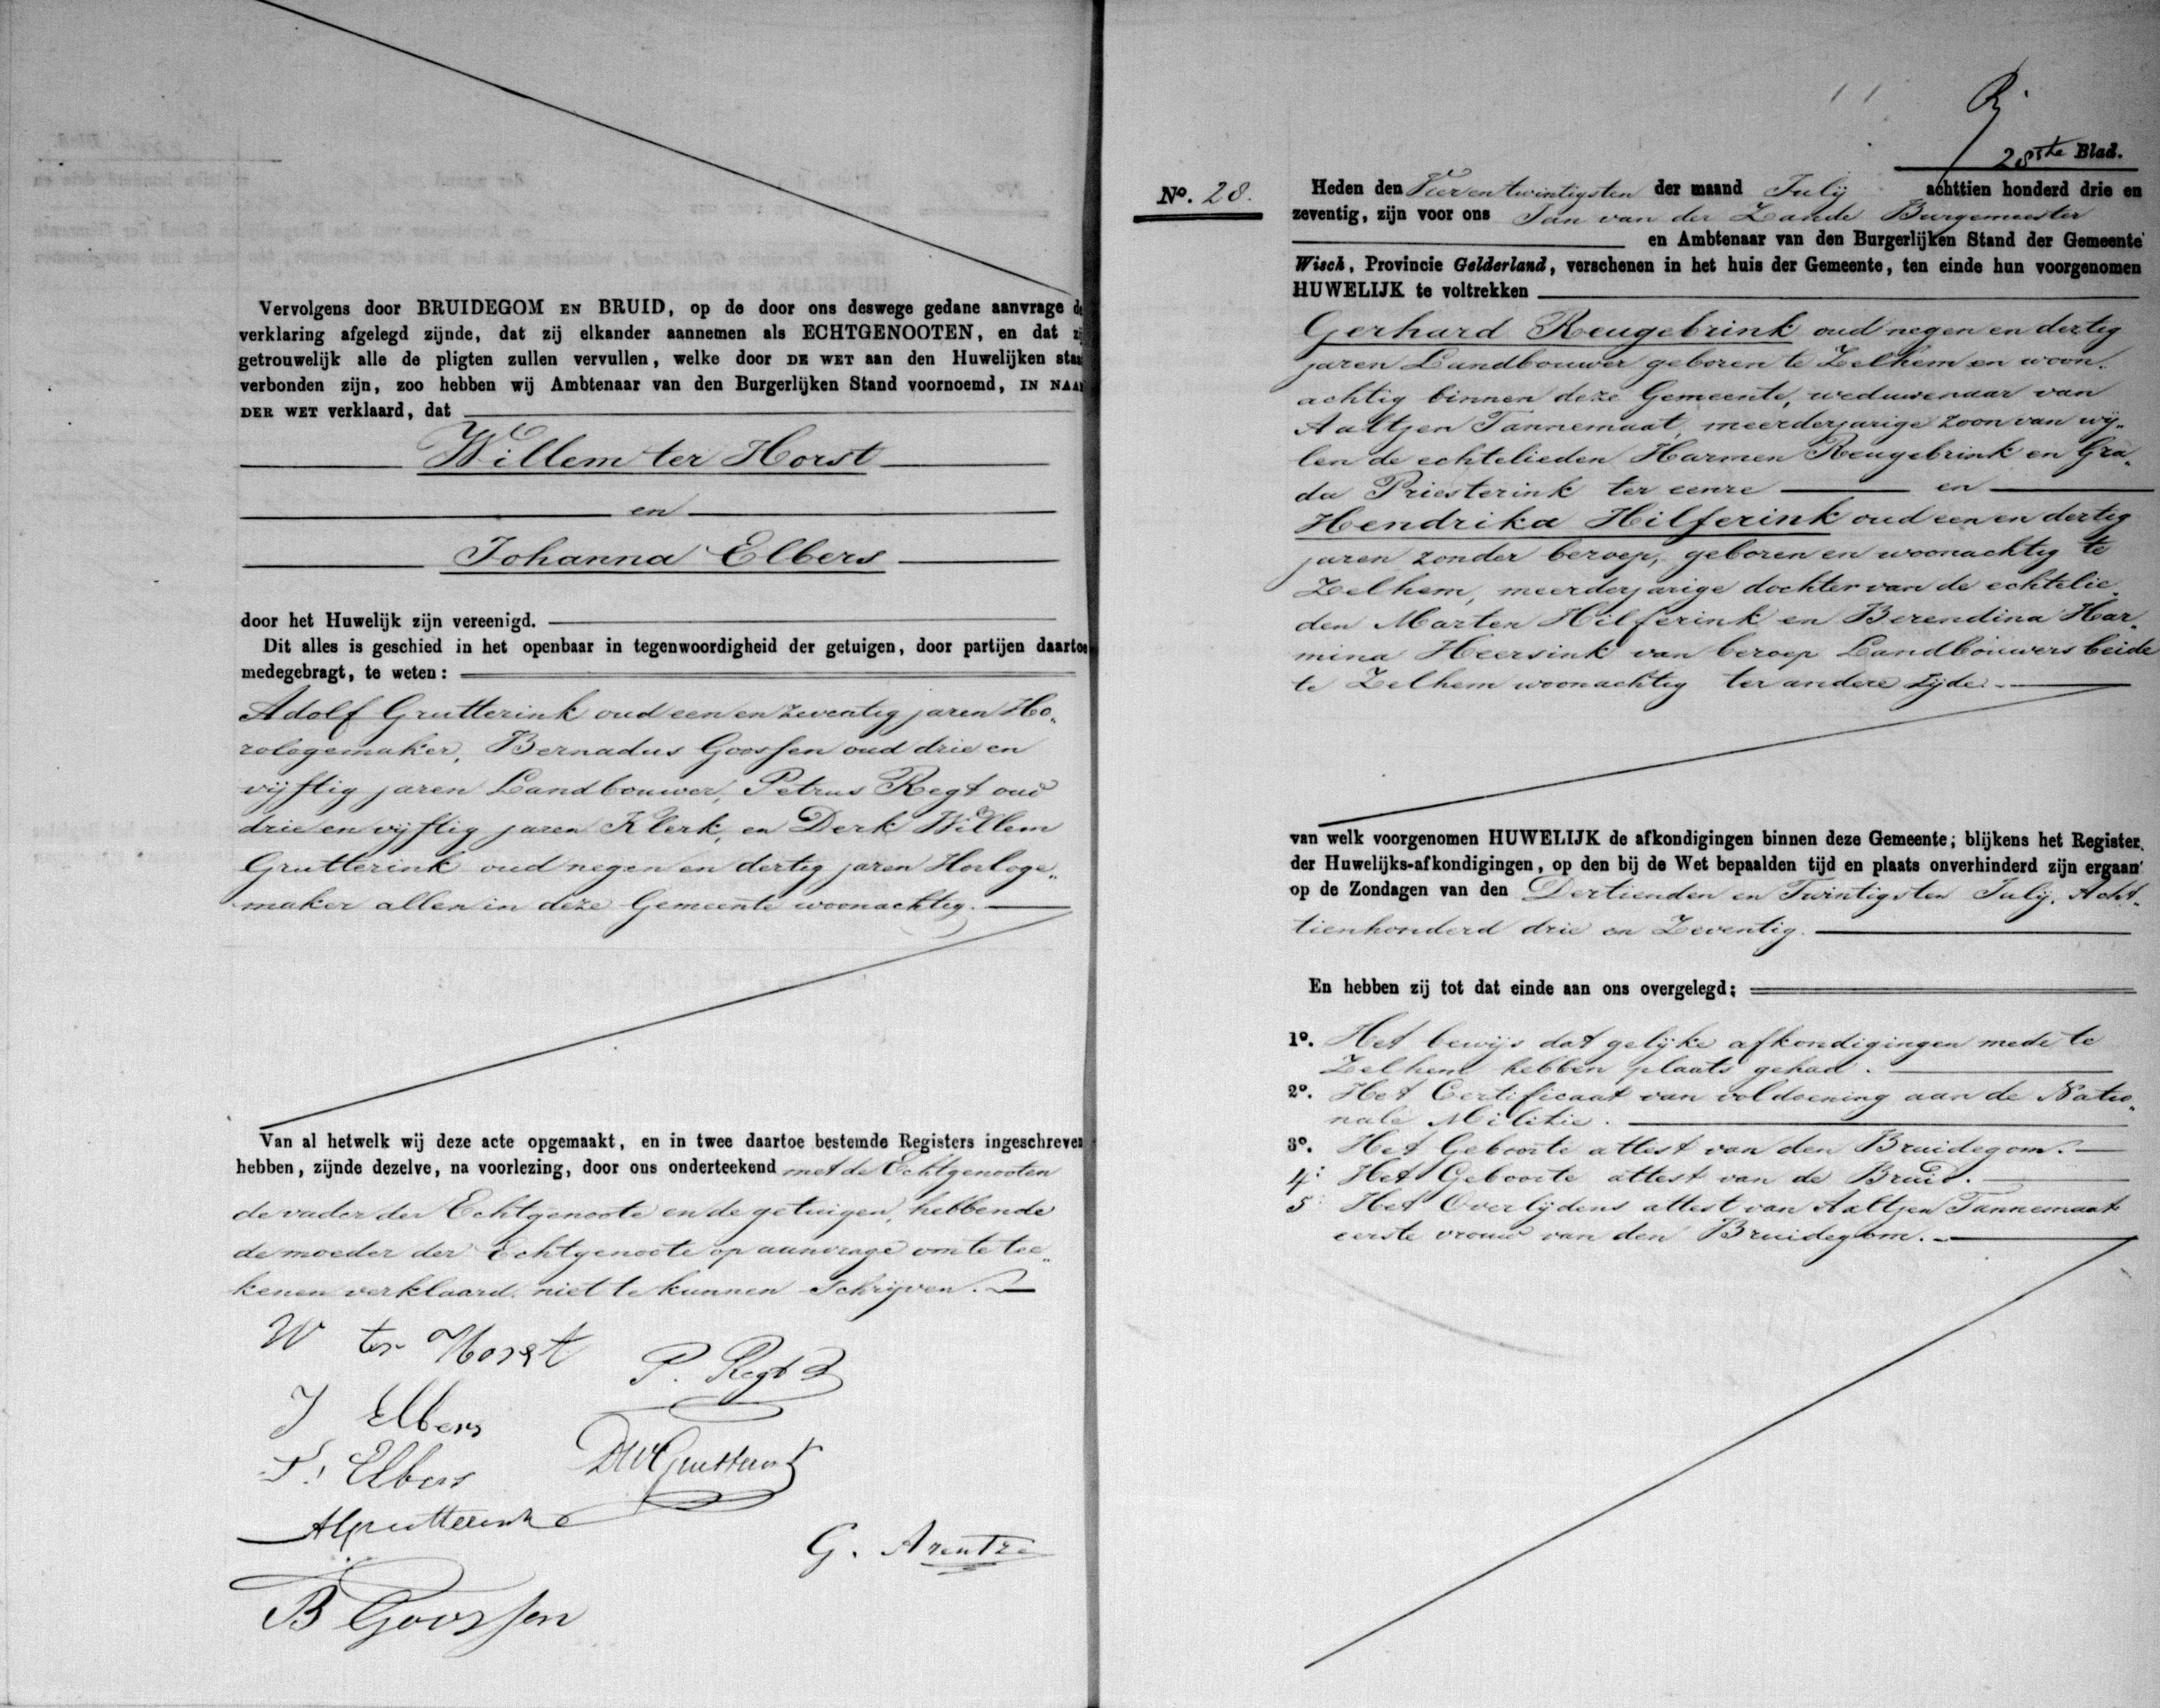 Vervolgens door BRUIDEGOM EN BRUID, op de door ons deswege gedane aanvrage de
verklaring afgelegd zijnde, dat zij elkander aannemen als ECHTGENOOTEN, en dat zij
getrouwelijk alle de pligten zullen vervullen, welke door DE WET aan den Huwelijken staat
verbonden zijn, zoo hebben wij Ambtenaar van den Burgerlijken Stand voornoemd, IN NAAM
DER WET verklaard, dat
Willem ter Horst
en
Johanna Elbers
door het Huwelijk zijn vereenigd.
Dit alles is geschied in het openbaar in tegenwoordigheid der getuigen, door partijen daartoe
medegebragt, te weten:
Adolf Grutterink oud een en zeventig jaren Ho„
rologemaker, Bernadus Goossen oud drie en
vijftig jaren Landbouwer, Petrus Regt oud
drie en vijftig jaren Klerk, en Derk Willem
Grutterink oud negen en dertig jaren Horloge„
maker allen in deze Gemeente woonachtig.
Van al hetwelk wij deze acte opgemaakt, en in twee daartoe bestemde Registers ingeschreven
hebben, zijnde dezelve, na voorlezing, door ons onderteekend met de Echtgenooten
de vader der Echtgenoote en de getuigen, hebbende
de moeder der Echtgenoote op aanvrage om te tee„
kenen verklaard niet te kunnen schrijven.
W ter Horst
P. Regt
J Elbers
DWGrutterink
AGrutterink
G. Arentze
B Goossen
28ste Blad.
No. 28.
Heden den Vier en twintigsten der maand Julij achttien honderd drie en
zeventig, zijn voor ons Jan van der Zande Burgemeester
en Ambtenaar van den Burgerlijken Stand der Gemeente
Wisch, Provincie Gelderland, verschenen in het huis der Gemeente, ten einde hun voorgenomen
HUWELIJK te voltrekken
Gerhard Reugebrink oud negen en dertig
jaren Landbouwer geboren te Zelhem en woon„
achtig binnen deze Gemeente, weduwenaar van
Aaltjen Tannemaat, meerderjarige zoon van wij„
len de echtelieden Harmen Reugebrink en Gra„
da Priesterink ter eenre en
Hendrika Hilferink oud een en dertig
jaren zonder beroep, geboren en woonachtig te
Zelhem, meerderjarige dochter van de echtelie„
den Marten Hilferink en Berendina Har„
mina Heersink van beroep Landbouwers beide
te Zelhem woonachtig ter andere zijde.
van welk voorgenomen HUWELIJK de afkondigingen binnen deze Gemeente; blijkens het Register
der Huwelijks-afkondigingen, op den bij de Wet bepaalden tijd en plaats onverhinderd zijn ergaan
op de Zondagen van den Dertienden en Twintigsten Julij, Acht„
tienhonderd drie en Zeventig.
En hebben zij tot dat einde aan ons overgelegd;
1o. Het bewijs dat gelijke afkondigingen mede te
Zelhem hebben plaats gehad.
2o. Het Certificaat van voldoening aan de Natio„
nale Militie.
3o. Het Geboorte attest van den Bruidegom.
4: Het Geboorte attest van de Bruid.
5: Het Overlijdens attest van Aaltjen Tannemaat
eerste vrouw van den Bruidegom.